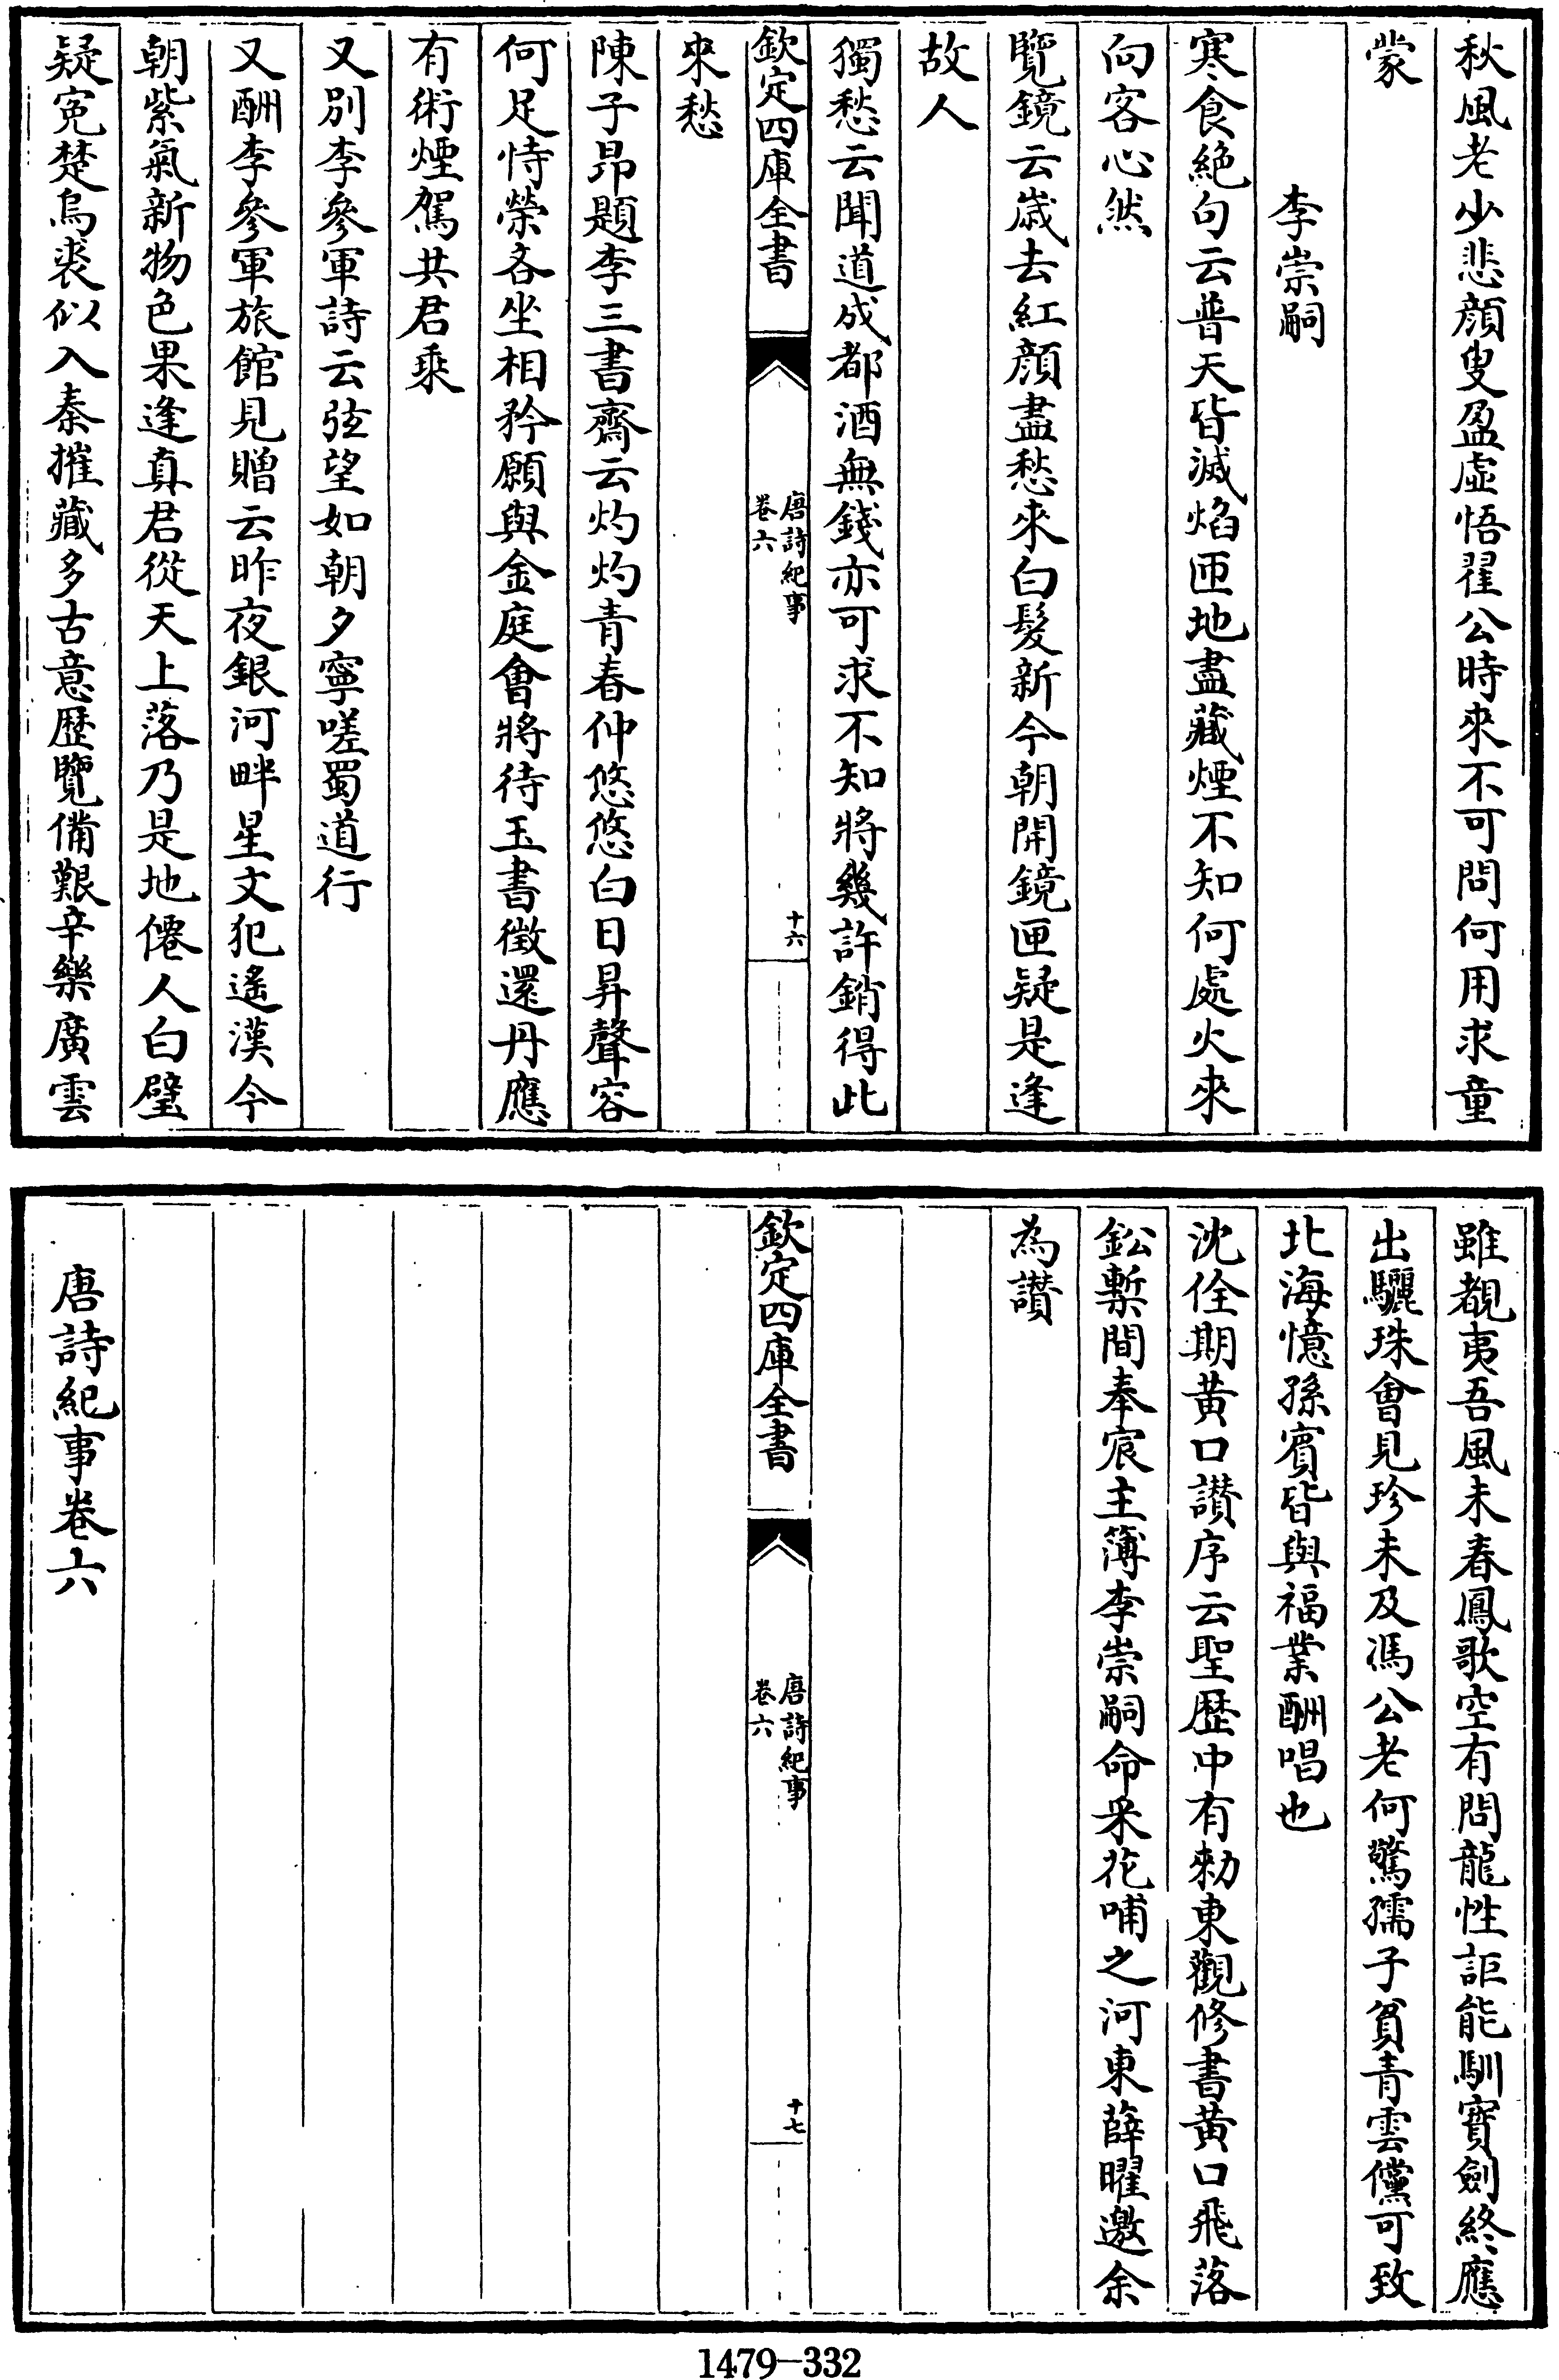 秋風老少悲顔叟盈虛悟翟公時來不可問何用求童
蒙
李崇嗣
寒食絶句云普天皆滅焰匝地盡藏煙不知何處火來
向客心然
覽鏡云歲去紅顔盡愁來白髮新今朝開鏡匣疑是逢
故人
獨愁云聞道成都酒無錢亦可求不知將幾許銷得此
欽定四庫全書
唐詩紀事
卷六
十六
來愁
陳子昻題李三書齋云灼灼青春仲悠悠白日昇聲容
何足恃榮吝坐相矜願與金庭會將待玉書徵還丹應
有術煙駕共君乘
又别李參軍詩云弦望如朝夕寧嗟蜀道行
又酬李參軍旅館見贈云昨夜銀河畔星文犯遥漢今
朝紫氣新物色果逢真君從天上落乃是地僊人白璧
疑寃楚烏裘似入秦摧藏多古意歴覽備艱辛樂廣雲
雖覩夷吾風未春鳳歌空有問龍性詎能馴寳劍終應
出驪珠會見珍未及馮公老何驚孺子貧青雲儻可致
北海憶孫賓皆與福業酬唱也
沈佺期黄口讃序云聖歴中有勅東觀修書黄口飛落
鈆槧間奉宸主簿李崇嗣命采花哺之河東薛曜邀余
為讃
欽定四庫全書
唐詩紀事
卷六
十七
唐詩紀事卷六
1479-332